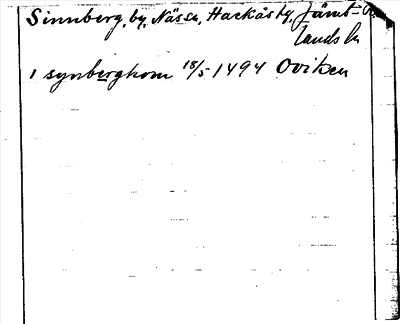 Sinnberg, by, Näs sn, Hackås tg, Jämt-
lands l.
i synberghom 18/5 1494 Oviken